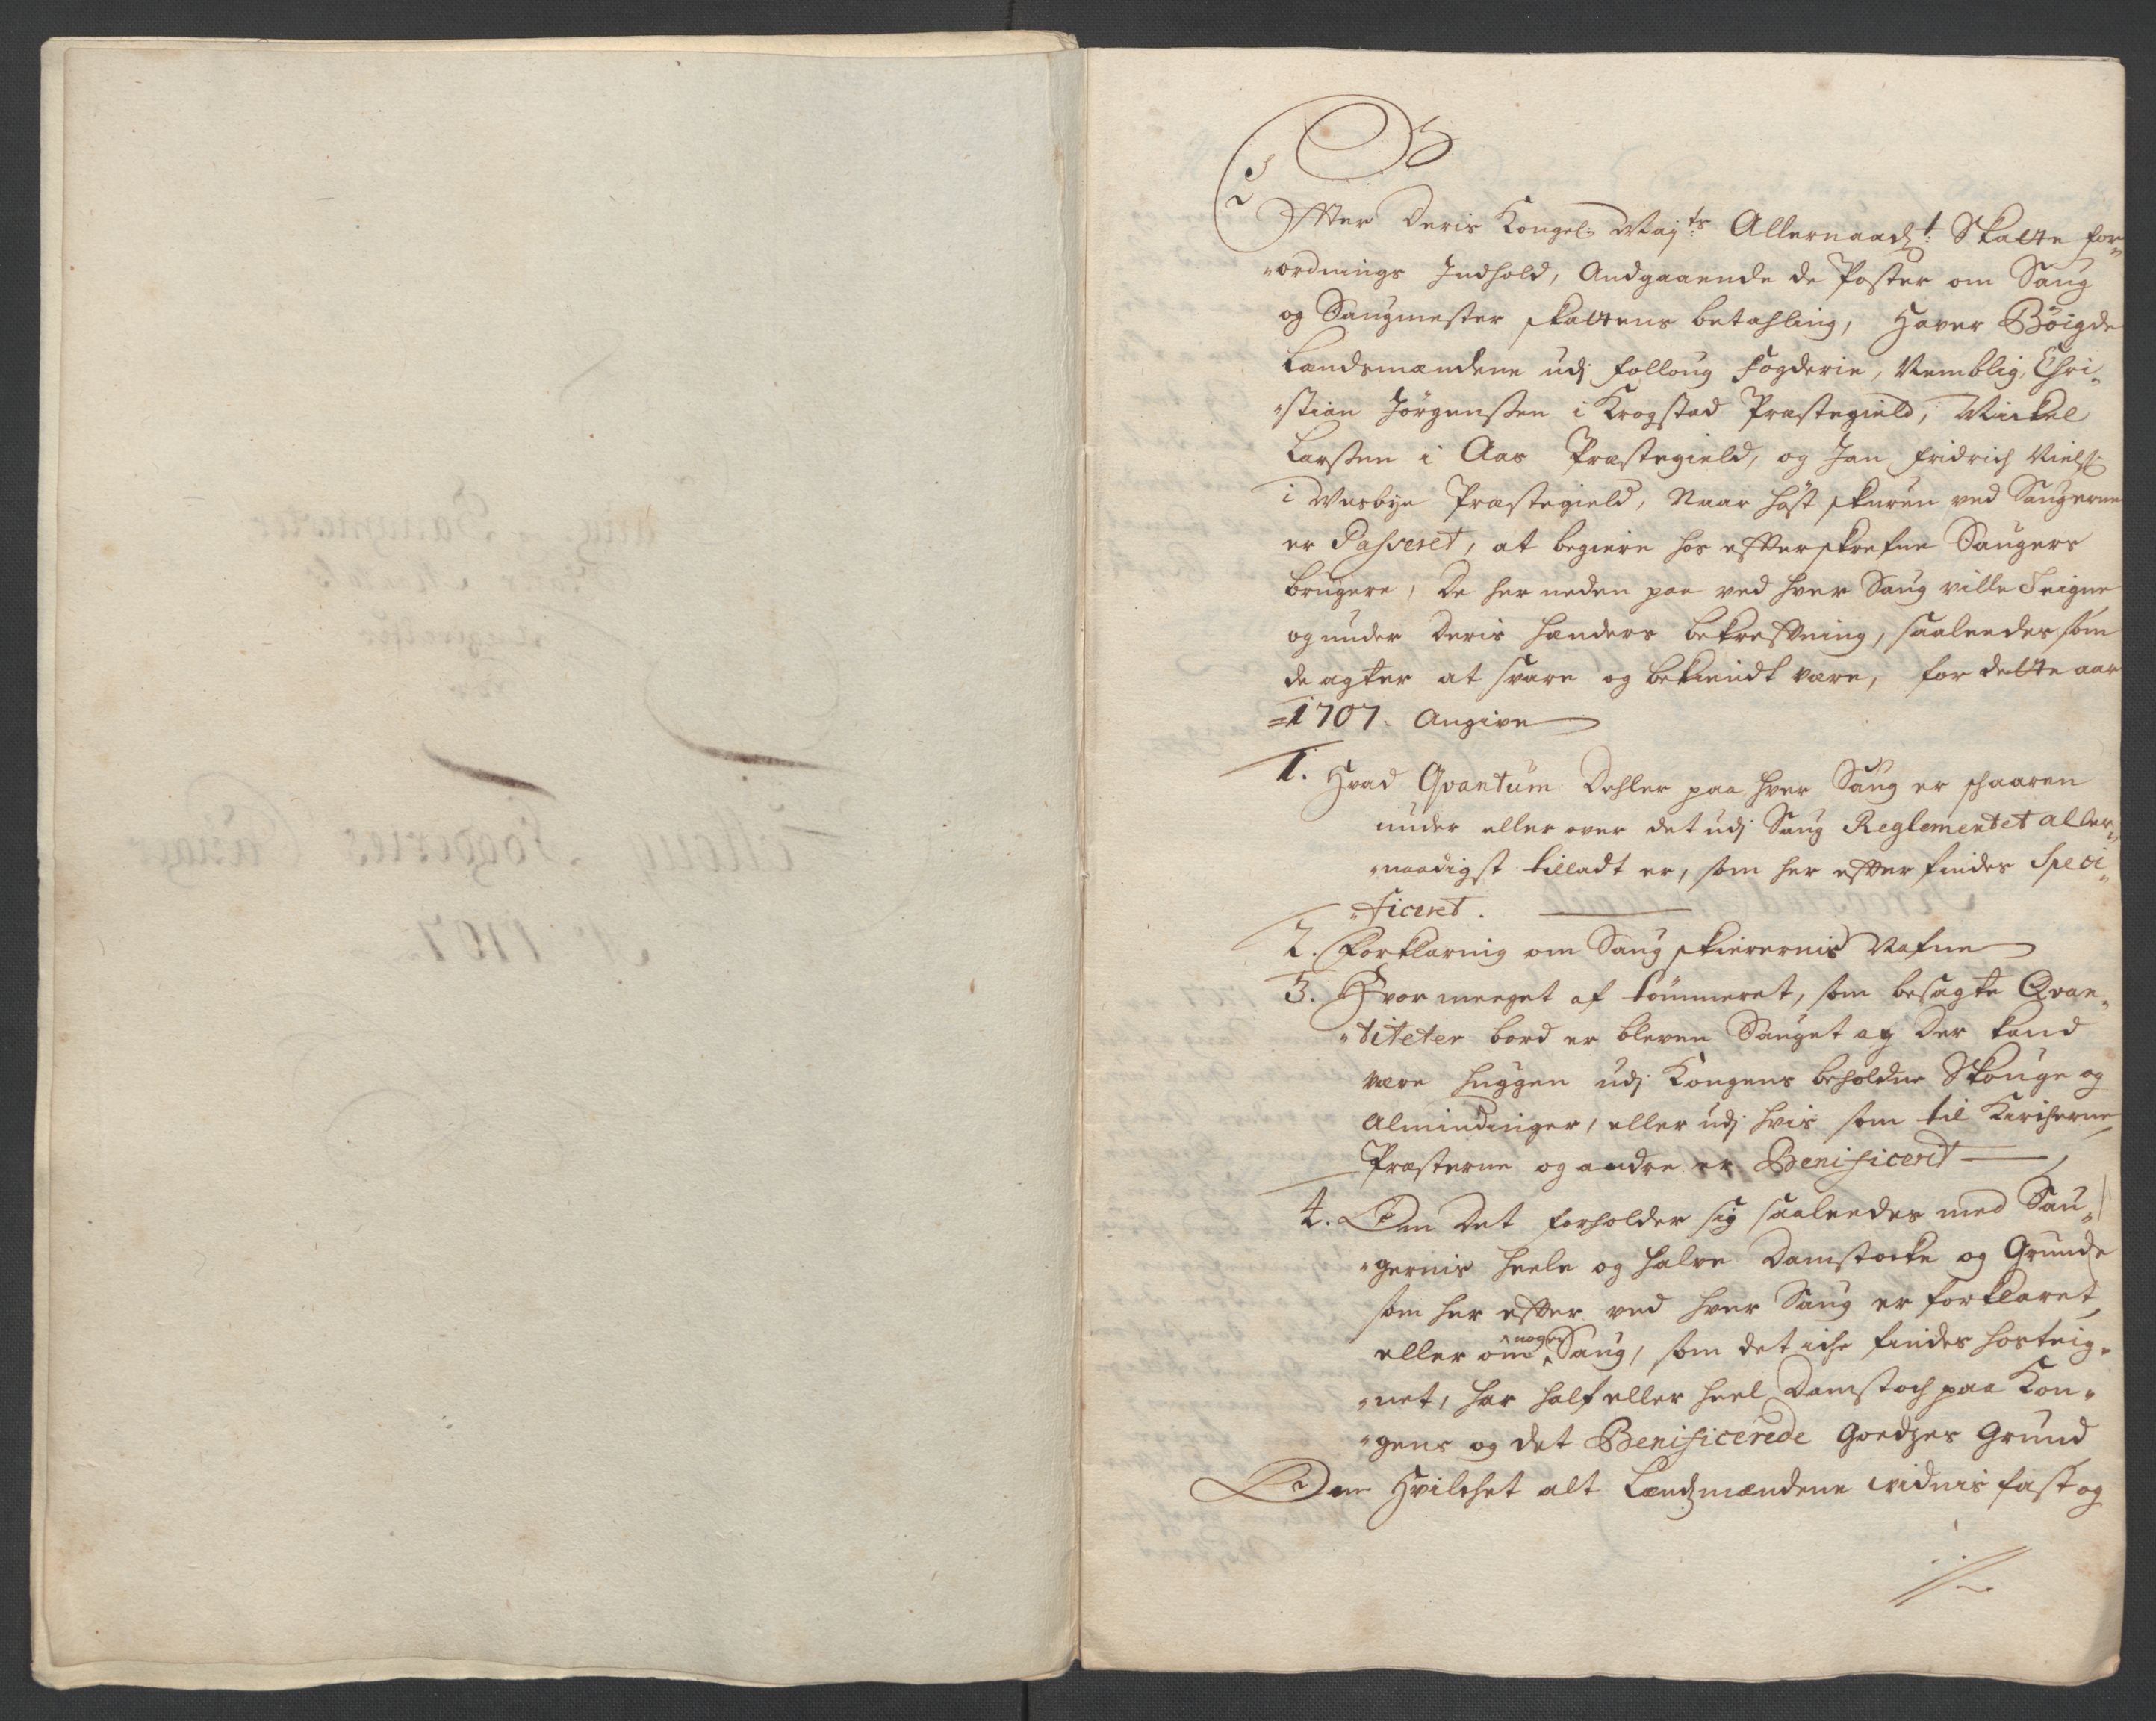 Effter Deris Kongel: Maj:ts Allernaadg:t Skatte for„
„ordnings Indhold, Andgaaende de Poster om Saug
og Saugmester skattens betahling, Haver Böigde
Lændsmændene udj folloug fogderie, Nemblig, Chri„
„stian Jörgenssen i Krogstad Præstegield, Mickel
Larssen i Aas Præstegield, og Jan fridrich Niels:
i Wesbye Præstegield, Naar höst skuren ved Saugerne
er Passeret, at begiere hos effterskrefne Saugers
brugere, De her neden paa ved hver Saug ville Teigne
og under Deris hænders bekrefftning, saaledes som
de agter at svare og bekiendt være, for dette aar
1707. Angive
1. Hvad Qvantum Dehler paa hver Saug er skaaren
under eller over det udj Saug Reglementet aller„
„naadigst tilladt er, som her effter findes Speci„
„ficeret.
2. Forklaring om Saug skierernis Nafne
3. Hvor meeget af tömmeret, som besagte Qvan„
„titeter bord er bleven Sauget af Der kand
være huggen udj Kongens beholdne Skouge og
Almindinger, eller udj hvis som til Kircherne
Præsterne og andre er Benificerit
4. Om Det forholder sig saaledes med Sau„
„gernis heele og halve Damstocke og Grunde
som her effter ved hver Saug er forklaret,
eller om nogen Saug, som det iche findes hosteig„
„net, har half eller heel Damstoch paa Kon„
„gens og det Benificerede Goedzes Grund
Om Hvilchet alt Lændzmændene vidnis fast og